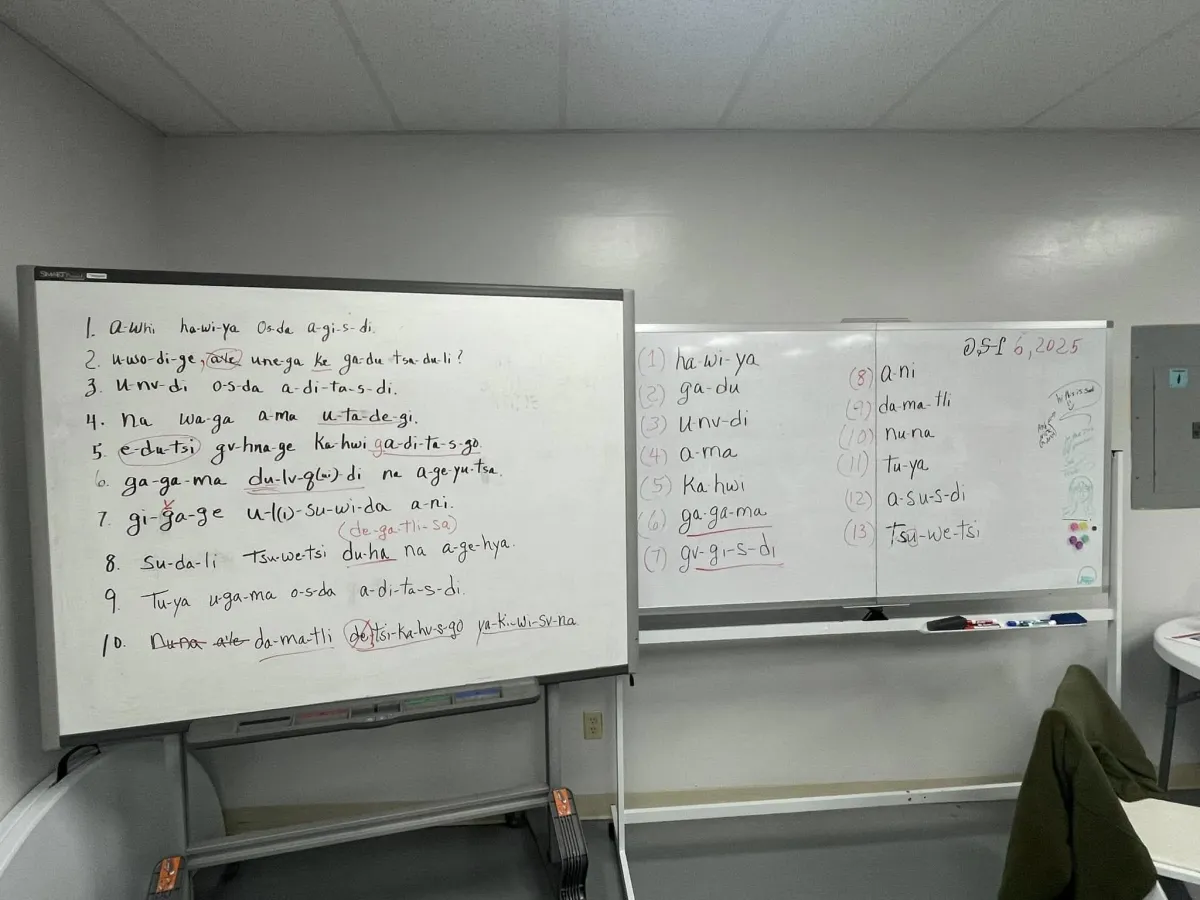 SMART
1. a-whi ha-wi-ya os-da a-gi-s-di.
2. u-wo-di-ge, a-le u-ne-ga ke ga-du tsa-du-li?
3. u-nv-di o-s-da a-di-ta-s-di.
4. na wa-ga a-ma u-ta-de-gi.
5. e-du-tsi gv-hna-ge ka-hwi ga-di-ta-s-go.
6. ga-ga-ma du-lv-q(wi)-di na a-ge-yu-tsa.
7. gi-ga-ge u-l(i)-su-wi-da a-ni.
(de-ga-tli-sa)
8. Su-da-li Tsu-we-tsi du-ha na a-ge-hya.
9. Tu-ya u-ga-ma o-s-da a-di-ta-s-di.
10. Nu-na a-le da-ma-tli de tsi-ka-hv-s-go ya-ki-wi-sv-na.
6, 2025
(1) ha-wi-ya
(2) ga-du
(3) u-nv-di
(4) a-ma
(5) Ka-hwi
(6) ga-ga-ma
(7) gv-gi-s-di
(8) a-ni
(9) da-ma-tli
(10) nu-na
(11) Tu-ya
(12) a-su-s-di
(13) Tsu-we-tsi